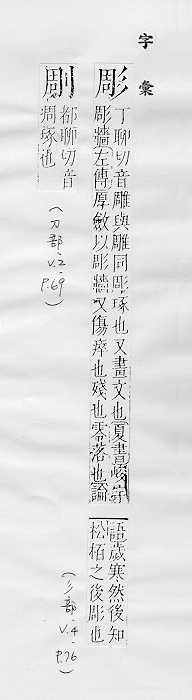 字彙
彫
丁聊切音雕與雕同彫琢也又畫文也夏書峻宇
彫牆左傳厚斂以彫牆又傷瘁也殘也零落也論
語歲寒然後知
松栢之後彫也
(彡部-V.4-P.76)
剮
都聊切音
琱琢也
(刀部-V.2-P.69)